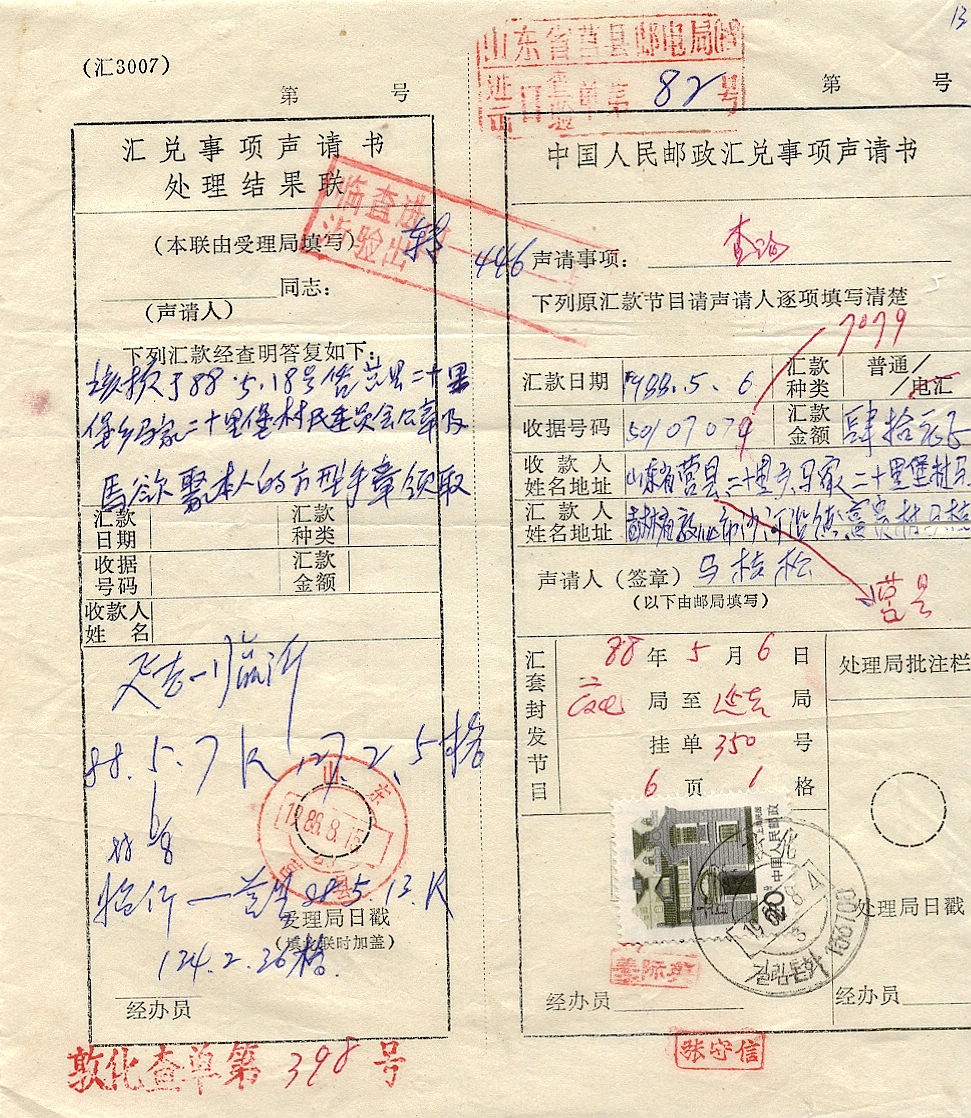 13
(汇3007)
第 号
汇兑事项声请书
处理结果联
(本联由受理局填写)
同志：
(声请人)
下列汇款经查明答复如下：
该款于88.5.18号
二十里
堡乡马家二十里堡村民委员会公章及
本人的方型手章领取
汇款日期
汇款种类
收据号码
汇款金额
收款人姓名
延吉—临沂
88.5.7
127.2.5格
临沂—莒县 88.5.13.
124.2.26格.
受理局日戳
(填此联时加盖)
经办员
敦化查单第398号
山东 莒县
临沂 查验 进出 转 446
山东省莒县邮电局
进口查验单第82号
第 号
中国人民邮政汇兑事项声请书
声请事项： 查询
下列原汇款节目请声请人逐项填写清楚
7079
汇款日期 1988.5.6
汇款种类 普通/电汇
收据号码
汇款金额 肆拾元
收款人姓名地址 山东省营县二十里 马家二十里堡村马
汇款人姓名地址 吉林省敦化市沙河沿
声请人(签章) 马桂松
(以下由邮局填写)
莒县
汇套封发节目
88年5月6日
局至延吉局
挂单350号
6页1格
处理局批注栏
中国人民邮政
敦化
133700
处理局日戳
姜际英
经办员
经办员
张守信